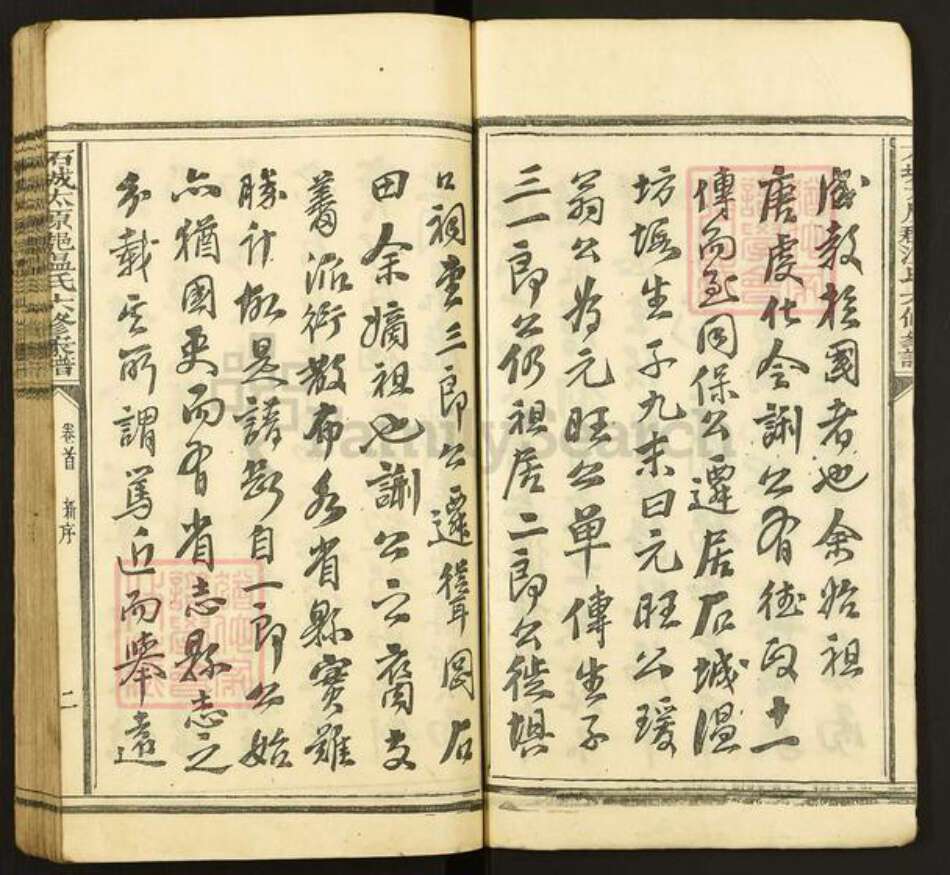 成教於國者也余始祖
唐虔化令諒公有德政十一
傳而至同保公遷居石城溫
坊堰生子九末曰元旺公瑗
翁公為元旺公單傳生子
三一郎公仍祖居二郎公徙埧
口祠重三郎公遷礎岡石
田余嫡祖也諒公之裔支
蕃派衍散布各省縣實難
勝計故是譜斷自一郎公始
亦猶國史而有省志縣志之
分載其所謂篤近而舉遠
石城太原郡溫氏六修家譜
卷首 新序
二
FamilySearch